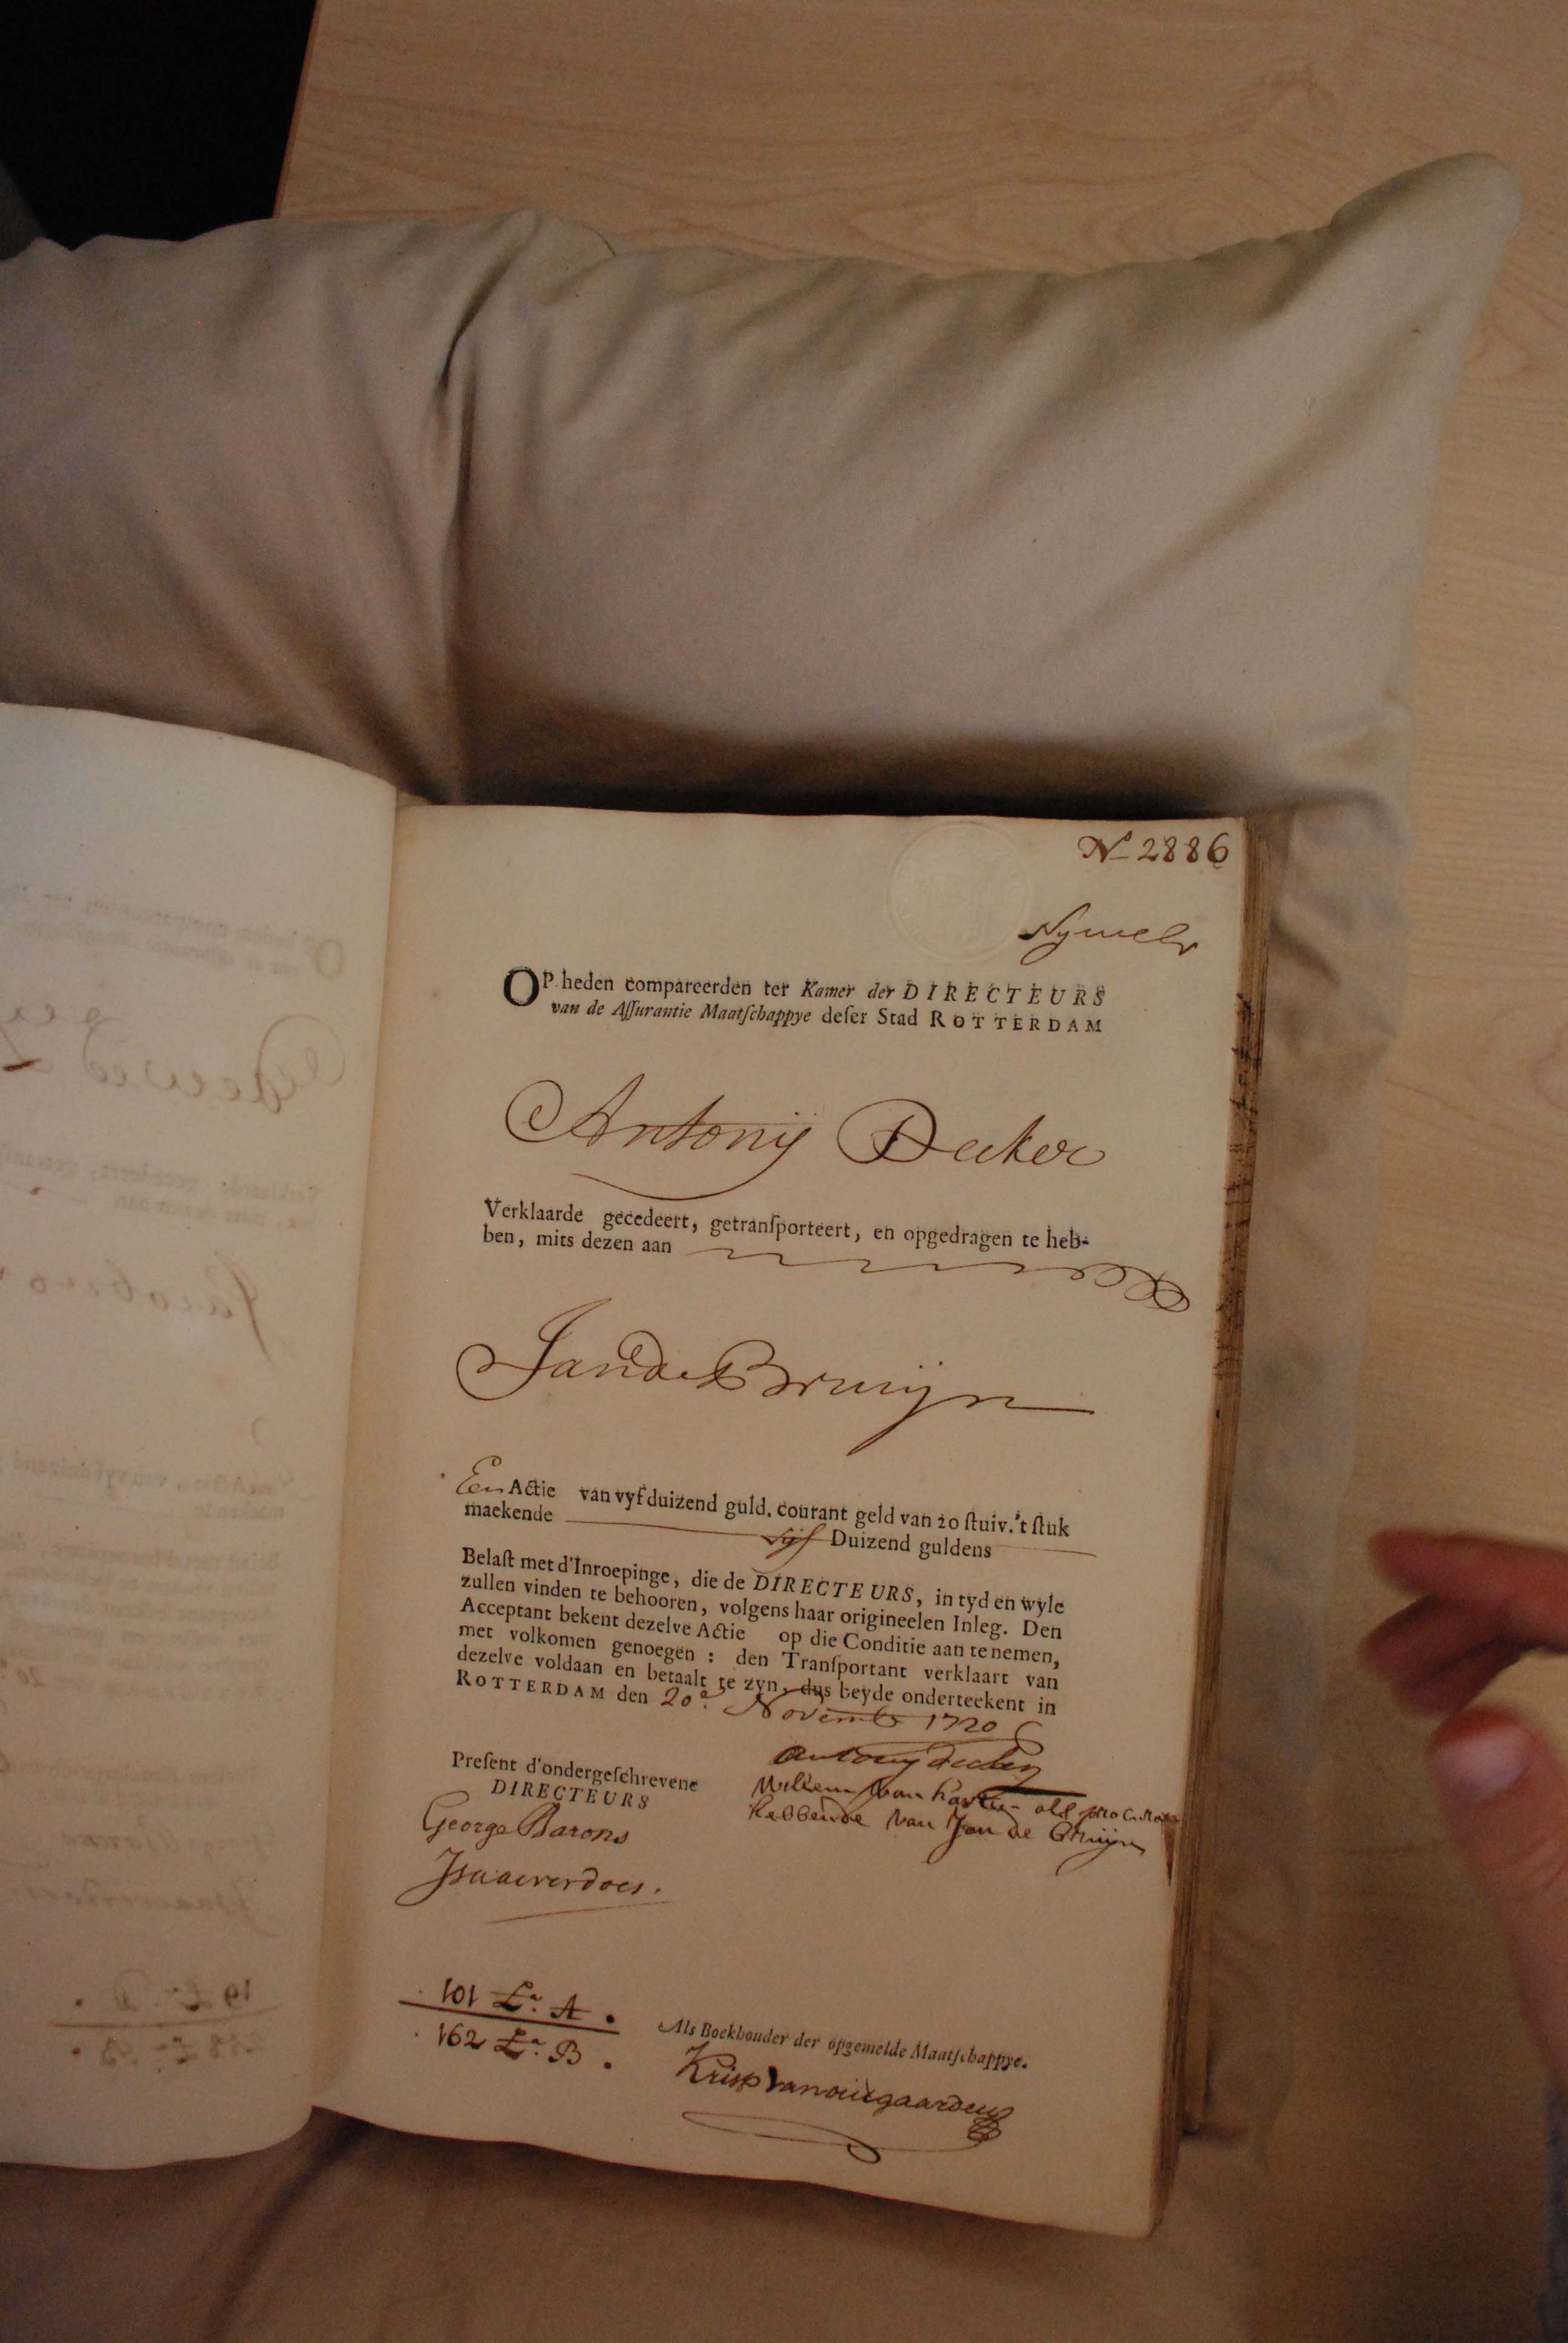 No 2886
OP heden compareerden ter Kamer der DIRECTEURS
van de Aſſurantie Maatſchappye deſer Stad ROTTERDAM
Antonij Decker
Verklaarde gecedeert, getranſporteert, en opgedragen te heb-
ben, mits dezen aan
Jan de Bruijn
Een Actie van vyfduizend guld. courant geld van 20 ſtuiv. 't ſtuk
maekende vijf Duizend guldens
Belaſt met d'Inroepinge, die de DIRECTEURS, in tyd en wyle
zullen vinden te behooren, volgens haar origineelen Inleg. Den
Acceptant bekent dezelve Actie op die Conditie aan te nemen,
met volkomen genoegen : den Tranſportant verklaart van
dezelve voldaan en betaalt te zyn, dus beyde onderteekent in
ROTTERDAM den 20e Novemb 1720
Antony Decker
Preſent d'ondergeſchrevene
DIRECTEURS
Willem van als
hebbende van Jan de Bruijn
George Barons
Isaac verdoes.
101 La. A.
162 La. B.
Als Boekhouder der opgemelde Maatſchappye.
Krisp